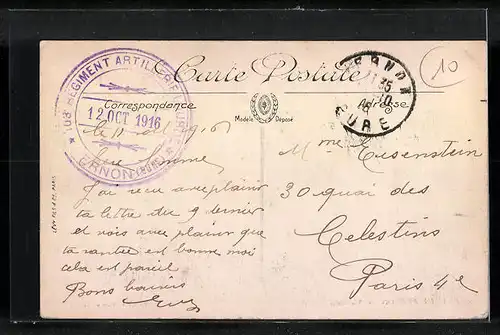 103e REGIMENT ARTILLERIE LOURDE
12 OCT 1916
CANON
EURE
10
Carte Postale
Correspondance
Adresse
Modèle Déposé
le 11 oct 1916
J'ai reçu avec plaisir
ta lettre du 9 dernier
et vois avec plaisir que
ta santée est bonne moi
cela est pareil
Bons baisers
Mme Eisenstein
30 quai des
Celestins
Paris 4e